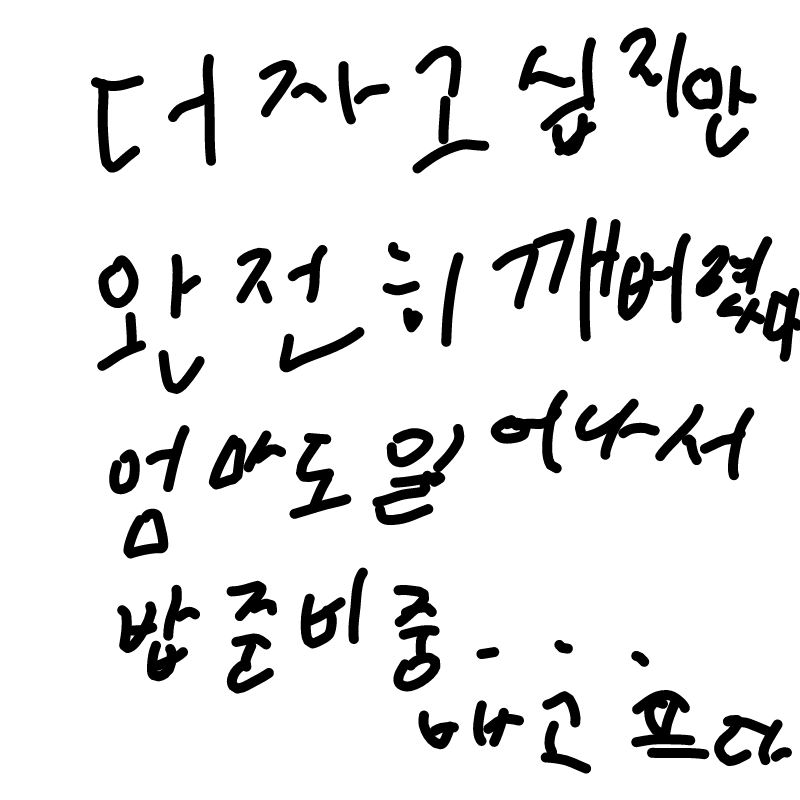 더 자고 싶지만
완전히 깨버렸다
엄마도 일어나서
밥준비중...
배고프다.